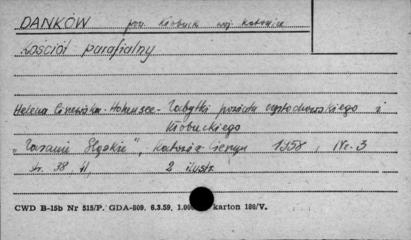 DANKÓW pow. Kłobuck woj. katowice
Kościół parafialny
Helena - Hohensee - Zabytki powiatu częstochowskiego i
Kłobuckiego
"Ziemia Śląska", 1958, Nr. 3
str. 38 41, 2 ilustr.
CWD B-15b Nr 515/P. GDA-809. 6.3.59. karton 180/V.